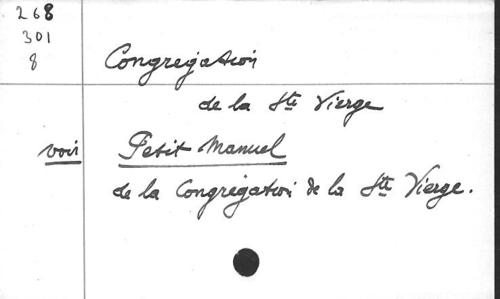 268
301
8
Congregation
de la Ste Vierge
voir Petit Manuel
de la Congrégation de la Ste Vierge.